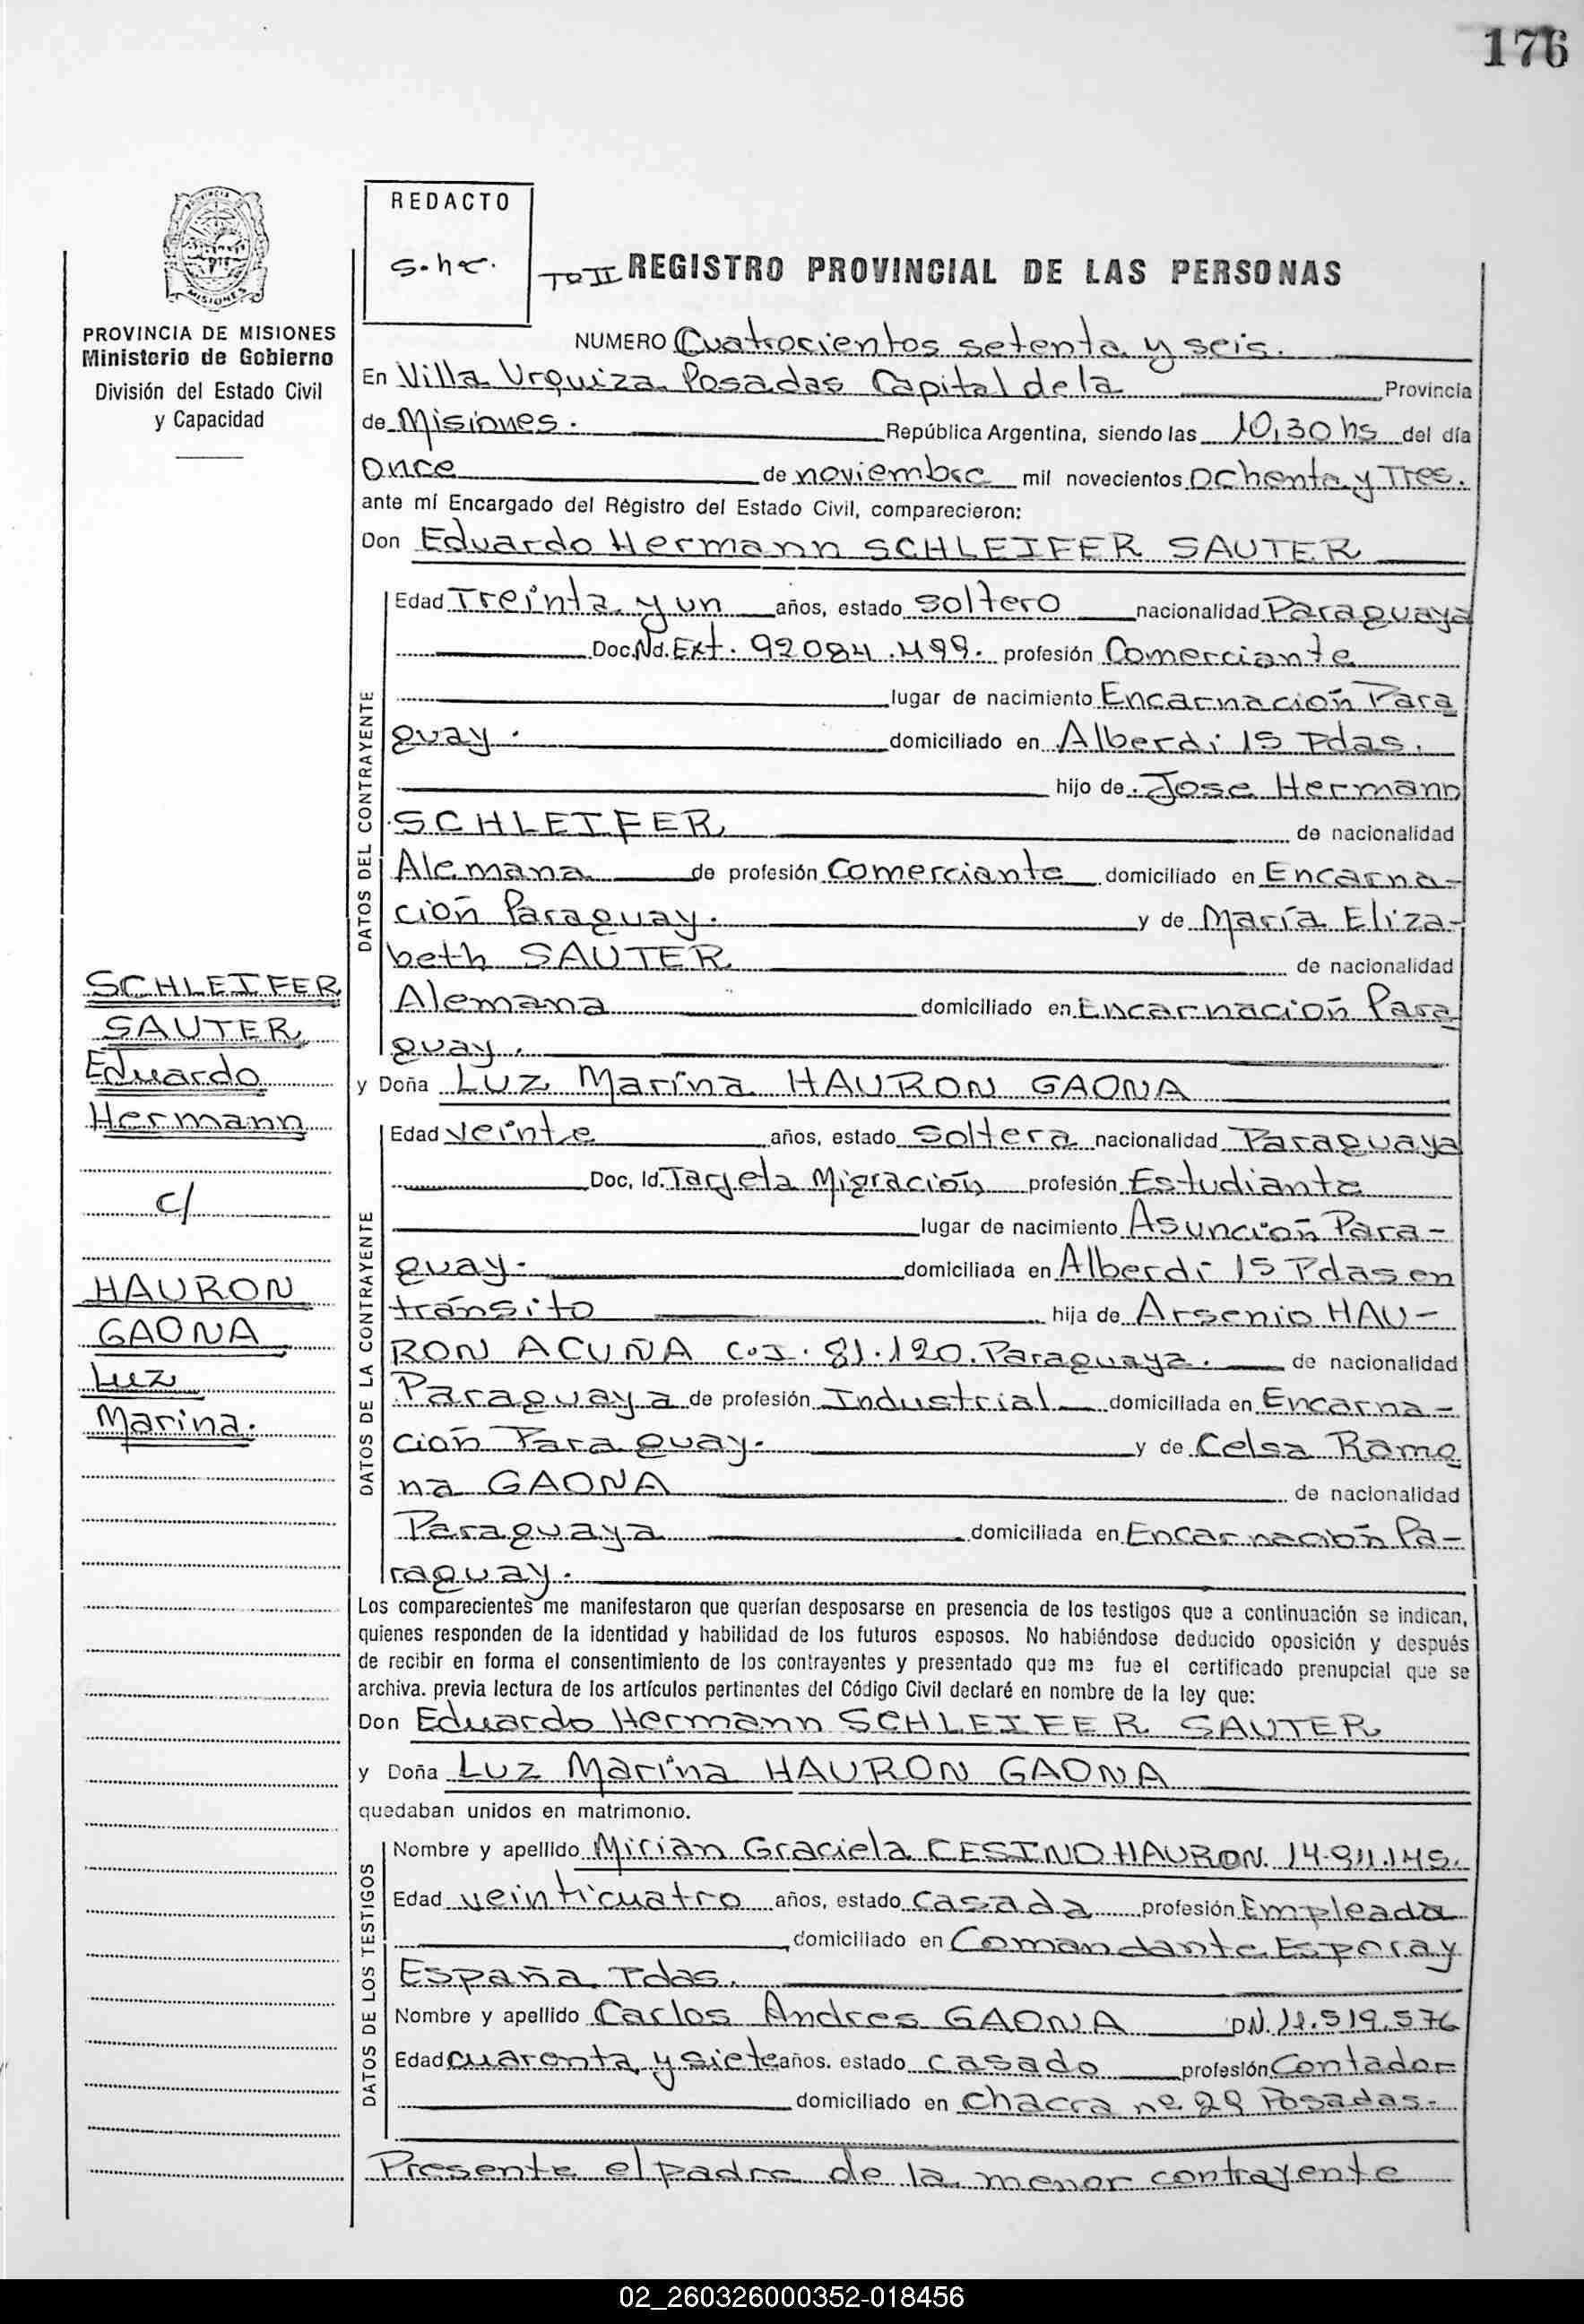 176
REDACTO
S.he.
Tº II REGISTRO PROVINCIAL DE LAS PERSONAS
PROVINCIA DE MISIONES
Ministerio de Gobierno
División del Estado Civil
y Capacidad
NUMERO Cuatrocientos setenta y seis.
En Villa Urquiza Posadas Capital de la Provincia
de Misiones. República Argentina, siendo las 10,30 hs del día
once de noviembre mil novecientos ochenta y Tres.
ante mí Encargado del Registro del Estado Civil, comparecieron:
Don Eduardo Hermann SCHLEIFER SAUTER
DATOS DEL CONTRAYENTE
Edad Treinta y un años, estado soltero nacionalidad Paraguaya
Doc. Nd. Ext. 92084.499. profesión Comerciante
lugar de nacimiento Encarnación Para
guay. domiciliado en Alberdi 15 Pdas.
hijo de Jose Hermann
SCHLEIFER de nacionalidad
Alemana de profesión Comerciante domiciliado en Encarna-
ción Paraguay. y de María Eliza-
beth SAUTER de nacionalidad
Alemana domiciliado en Encarnación Para
guay.
SCHLEIFER
SAUTER
Eduardo
Hermann
c/
HAURON
GAONA
Luz
Marina.
y Doña Luz Marína HAURON GAONA
DATOS DE LA CONTRAYENTE
Edad veinte años, estado Soltera nacionalidad Paraguaya
Doc, Id. Tarjeta Migración profesión Estudiante
lugar de nacimiento Asunción Para-
guay. domiciliada en Alberdi 15 Pdas en
tránsito hija de Arsenio HAU-
RON ACUÑA C.I. 81.120. Paraguaya. de nacionalidad
Paraguaya de profesión Industrial domiciliada en Encarna-
ción Paraguay. y de Celsa Ramo
na GAONA de nacionalidad
Paraguaya domiciliada en Encarnación Pa-
raguay.
Los comparecientes me manifestaron que querían desposarse en presencia de los testigos que a continuación se indican,
quienes responden de la identidad y habilidad de los futuros esposos. No habiéndose deducido oposición y después
de recibir en forma el consentimiento de los contrayentes y presentado que me fue el certificado prenupcial que se
archiva. previa lectura de los artículos pertinentes del Código Civil declaré en nombre de la ley que:
Don Eduardo Hermann SCHLEIFER SAUTER
y Doña Luz Marína HAURON GAONA
quedaban unidos en matrimonio.
DATOS DE LOS TESTIGOS
Nombre y apellido Mirian Graciela CESINO HAURON. 14.911.145.
Edad veinticuatro años, estado casada profesión Empleada
domiciliado en Comandante Espora y
España Pdas.
Nombre y apellido Carlos Andres GAONA DN. 11.519.576
Edad cuarenta y siete años. estado casado profesión Contador
domiciliado en chacra nº 29 Posadas.-
Presente el padre de la menor contrayente
02_260326000352-018456